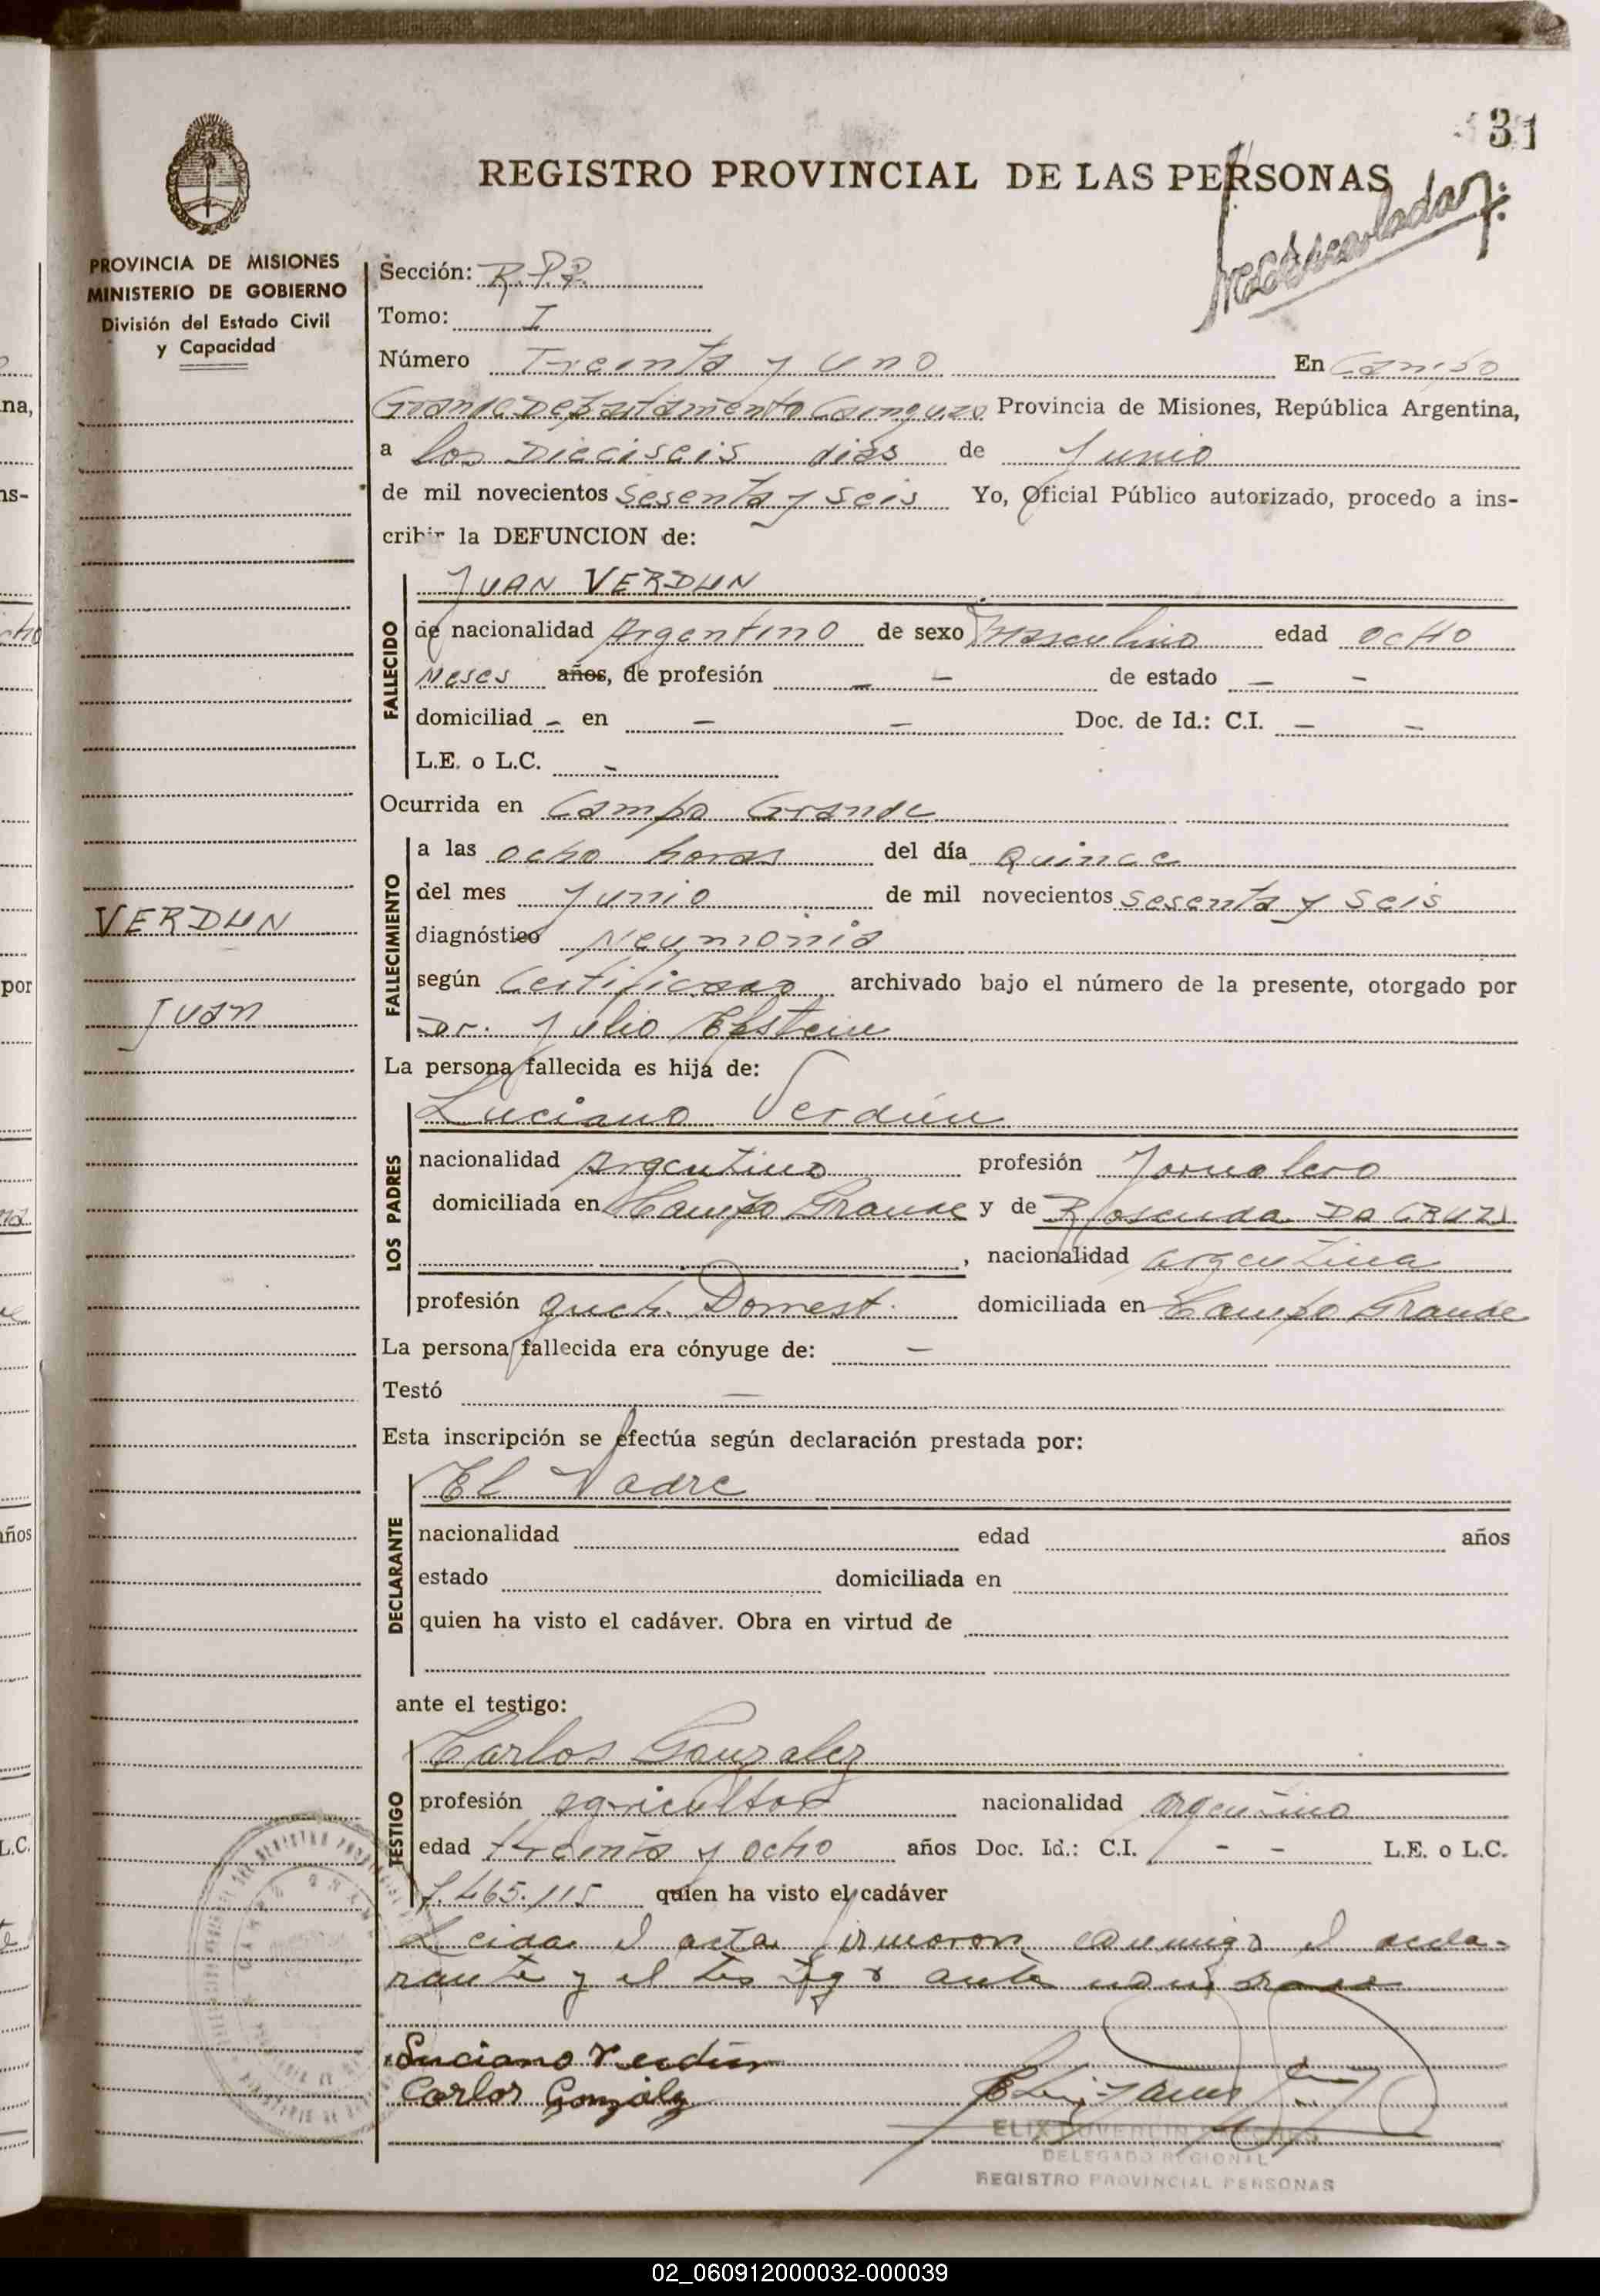 31
REGISTRO PROVINCIAL DE LAS PERSONAS
PROVINCIA DE MISIONES
MINISTERIO DE GOBIERNO
División del Estado Civil
y Capacidad
Sección: R.P.P.
Tomo: I
Número Treinta y uno En Campo
Grande Departamento Cainguas Provincia de Misiones, República Argentina,
a los Dieciseis dias de Junio
de mil novecientos sesenta y seis Yo, Oficial Público autorizado, procedo a ins-
cribir la DEFUNCION de:
JUAN VERDUN
FALLECIDO
de nacionalidad Argentino de sexo Masculino edad ocho
Meses años, de profesión — — de estado — —
domiciliad - en — — Doc. de Id.: C.I. — —
L.E. o L.C. -
Ocurrida en Campo Grande
FALLECIMIENTO
a las ocho horas del día Quince
del mes Junio de mil novecientos sesenta y seis
diagnóstico Neumonia
según Certificado archivado bajo el número de la presente, otorgado por
Dr. Julio Epstein
VERDUN
Juan
La persona fallecida es hija de:
LOS PADRES
Luciano Verdún
nacionalidad argentino profesión Jornalero
domiciliada en Campo Grande y de Rosenda DA CRUZ
, nacionalidad argentina
profesión queh. Domest. domiciliada en Campo Grande
La persona fallecida era cónyuge de: —
Testó —
Esta inscripción se efectúa según declaración prestada por:
DECLARANTE
El Padre
nacionalidad edad años
estado domiciliada en
quien ha visto el cadáver. Obra en virtud de
ante el testigo:
TESTIGO
Carlos Gonzalez
profesión agricultor nacionalidad argentino
edad treinta y ocho años Doc. Id.: C.I. - - L.E. o L.C.
7.465.115 quien ha visto el cadáver
Leida el acta firmaron conmigo el decla-
rante y el testigo ante
Luciano Verdún
Carlos Gonzálz
DELEGADO REGIONAL
REGISTRO PROVINCIAL PERSONAS
02_060912000032-000039